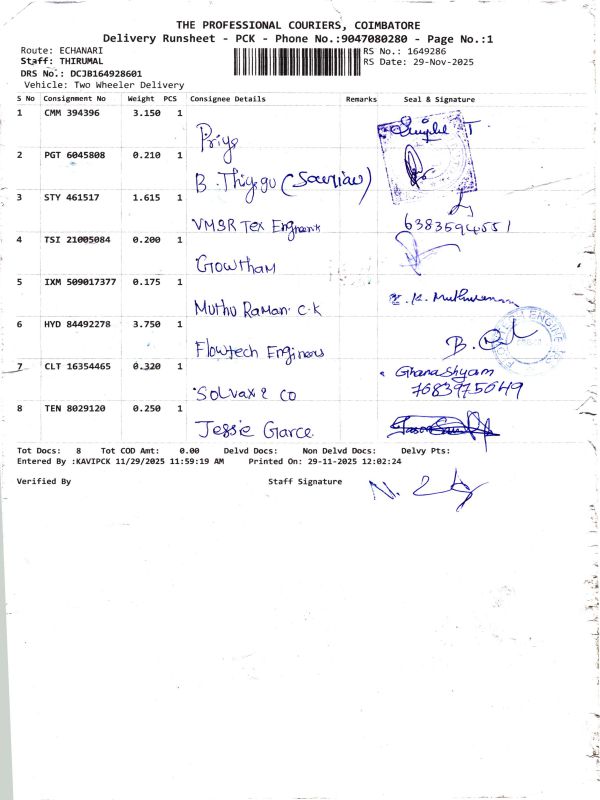 THE PROFESSIONAL COURIERS, COIMBATORE
Delivery Runsheet - PCK - Phone No.:9047080280 - Page No.:1
Route: ECHANARI
Staff: THIRUMAL
DRS No.: DCJB164928601
Vehicle: Two Wheeler Delivery
RS No.: 1649286
RS Date: 29-Nov-2025
S No Consignment No Weight PCS Consignee Details Remarks Seal & Signature
1 CMM 394396 3.150 1
Priya
2 PGT 6045808 0.210 1
B.
3 STY 461517 1.615 1
VMSR Tex 6383594551
4 TSI 21005084 0.200 1
Gowtham
5 IXM 509017377 0.175 1
Muthu Raman. C.K
6 HYD 84492278 3.750 1
Flowtech B.
7 CLT 16354465 0.320 1
Ghanashyam
Co 7683975649
8 TEN 8029120 0.250 1
Jessie Garce
Tot Docs: 8 Tot COD Amt: 0.00 Delvd Docs: Non Delvd Docs: Delvy Pts:
Entered By :KAVIPCK 11/29/2025 11:59:19 AM Printed On: 29-11-2025 12:02:24
Verified By Staff Signature